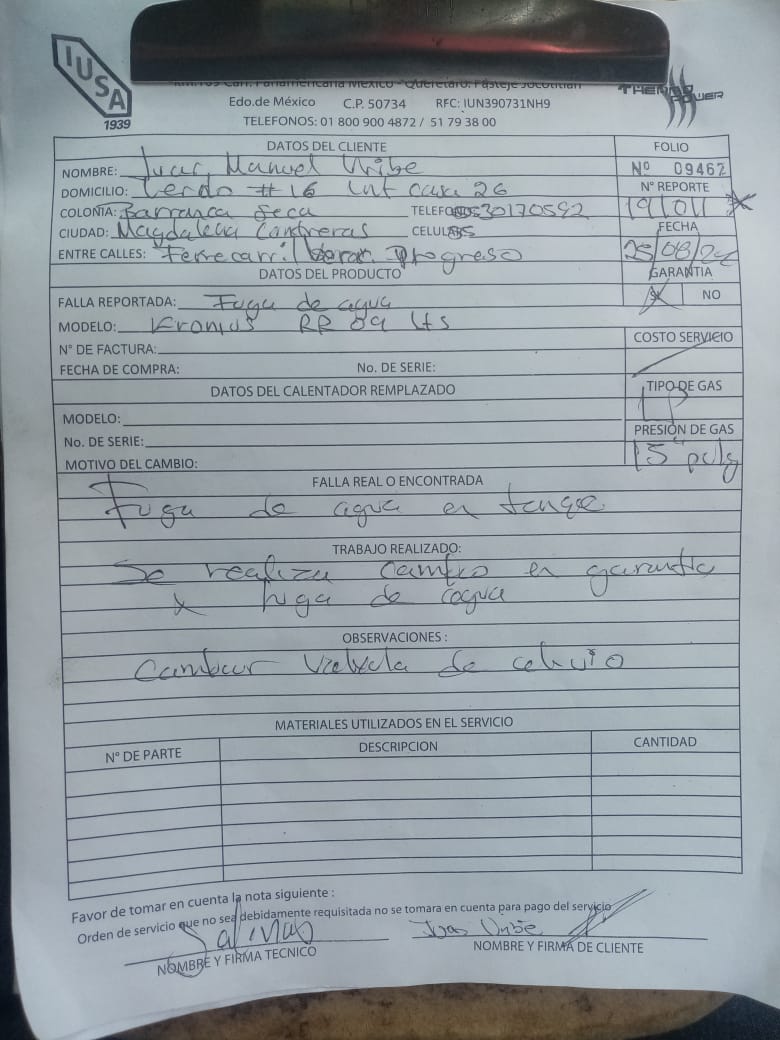 IUSA
1939
KM.109 Carr. Panamericana México - Querétaro. Pastejé Jocotitlán
THERMO POWER
Edo.de México C.P. 50734 RFC: IUN390731NH9
TELEFONOS: 01 800 900 4872 / 51 79 38 00
DATOS DEL CLIENTE FOLIO
NOMBRE: Juan Manuel Uribe Nº 09462
DOMICILIO: Lerdo #16 Int casa 26 N° REPORTE
COLONIA: Barranca Seca TELEFONO: 5530170592 191011
CIUDAD: Magdalena Contreras CELULAR: FECHA
ENTRE CALLES: Ferrocarril Progreso 25/08/
DATOS DEL PRODUCTO GARANTIA
FALLA REPORTADA: Fuga de agua SI NO
MODELO: Kronius RR 09 Lts
N° DE FACTURA: COSTO SERVICIO
FECHA DE COMPRA: No. DE SERIE:
DATOS DEL CALENTADOR REMPLAZADO TIPO DE GAS
MODELO: LP
No. DE SERIE: PRESIÓN DE GAS
MOTIVO DEL CAMBIO: 15" pulg
FALLA REAL O ENCONTRADA
Fuga de agua en tanque
TRABAJO REALIZADO:
Se realiza cambio en garantia
x fuga de agua
OBSERVACIONES :
Cambiar Valvula de
MATERIALES UTILIZADOS EN EL SERVICIO
N° DE PARTE DESCRIPCION CANTIDAD
Favor de tomar en cuenta la nota siguiente :
Orden de servicio que no sea debidamente requisitada no se tomara en cuenta para pago del servicio
Salinas Juan Uribe
NOMBRE Y FIRMA TECNICO NOMBRE Y FIRMA DE CLIENTE